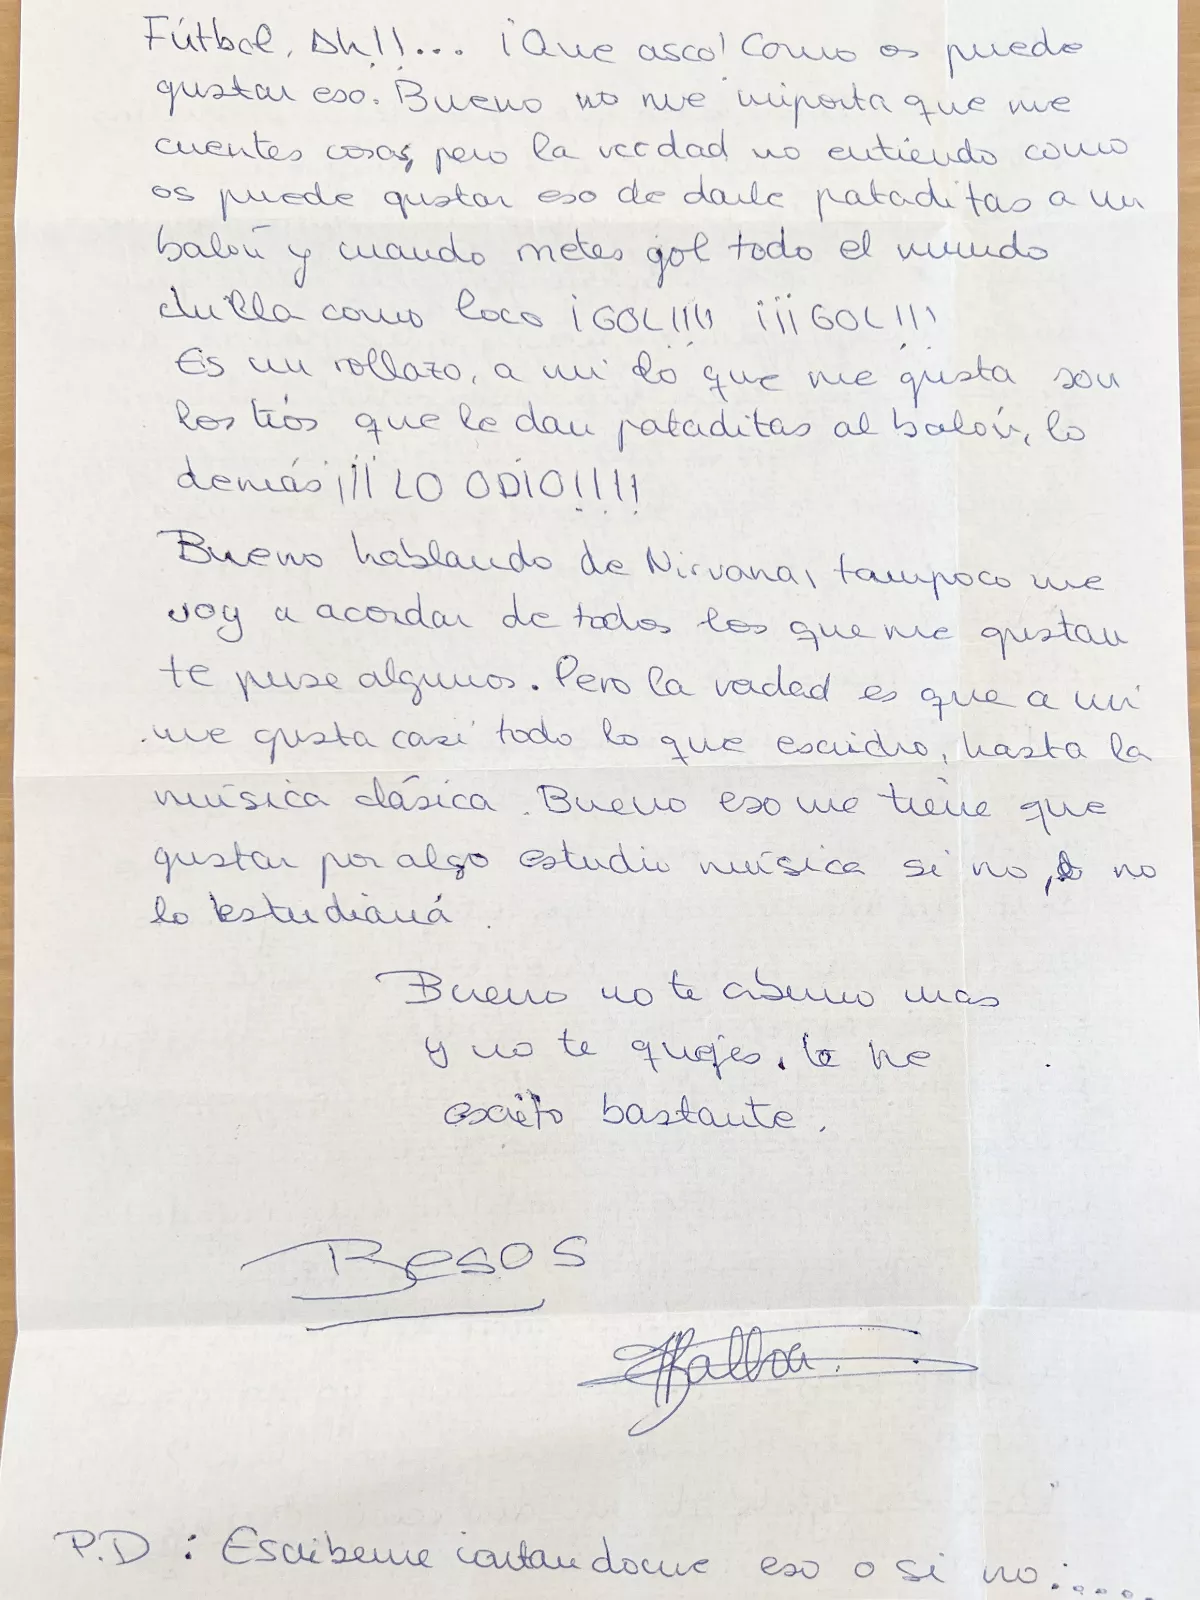 Fútbol, Ah!!... ¡Que asco! Como os puede
gustar eso. Bueno no me importa que me
cuentes cosas, pero la verdad no entiendo como
os puede gustar eso de darle pataditas a un
balón y cuando metes gol todo el mundo
chilla como loco ¡GOL!!!! ¡¡¡GOL!!!
Es un rollazo, a mi lo que me gusta son
los tíos que le dan pataditas al balón, lo
demás ¡¡¡LO ODIO!!!!
Bueno hablando de Nirvana, tampoco me
voy a acordar de todos los que me gustan
te puse algunos. Pero la verdad es que a mi
me gusta casi todo lo que escucho, hasta la
música clásica. Bueno eso me tiene que
gustar por algo estudio música si no, no
lo estudiaría.
Bueno no te aburro mas
y no te quejes. te he
escrito bastante.
Besos
P.D : Escribeme contandome eso o si no......